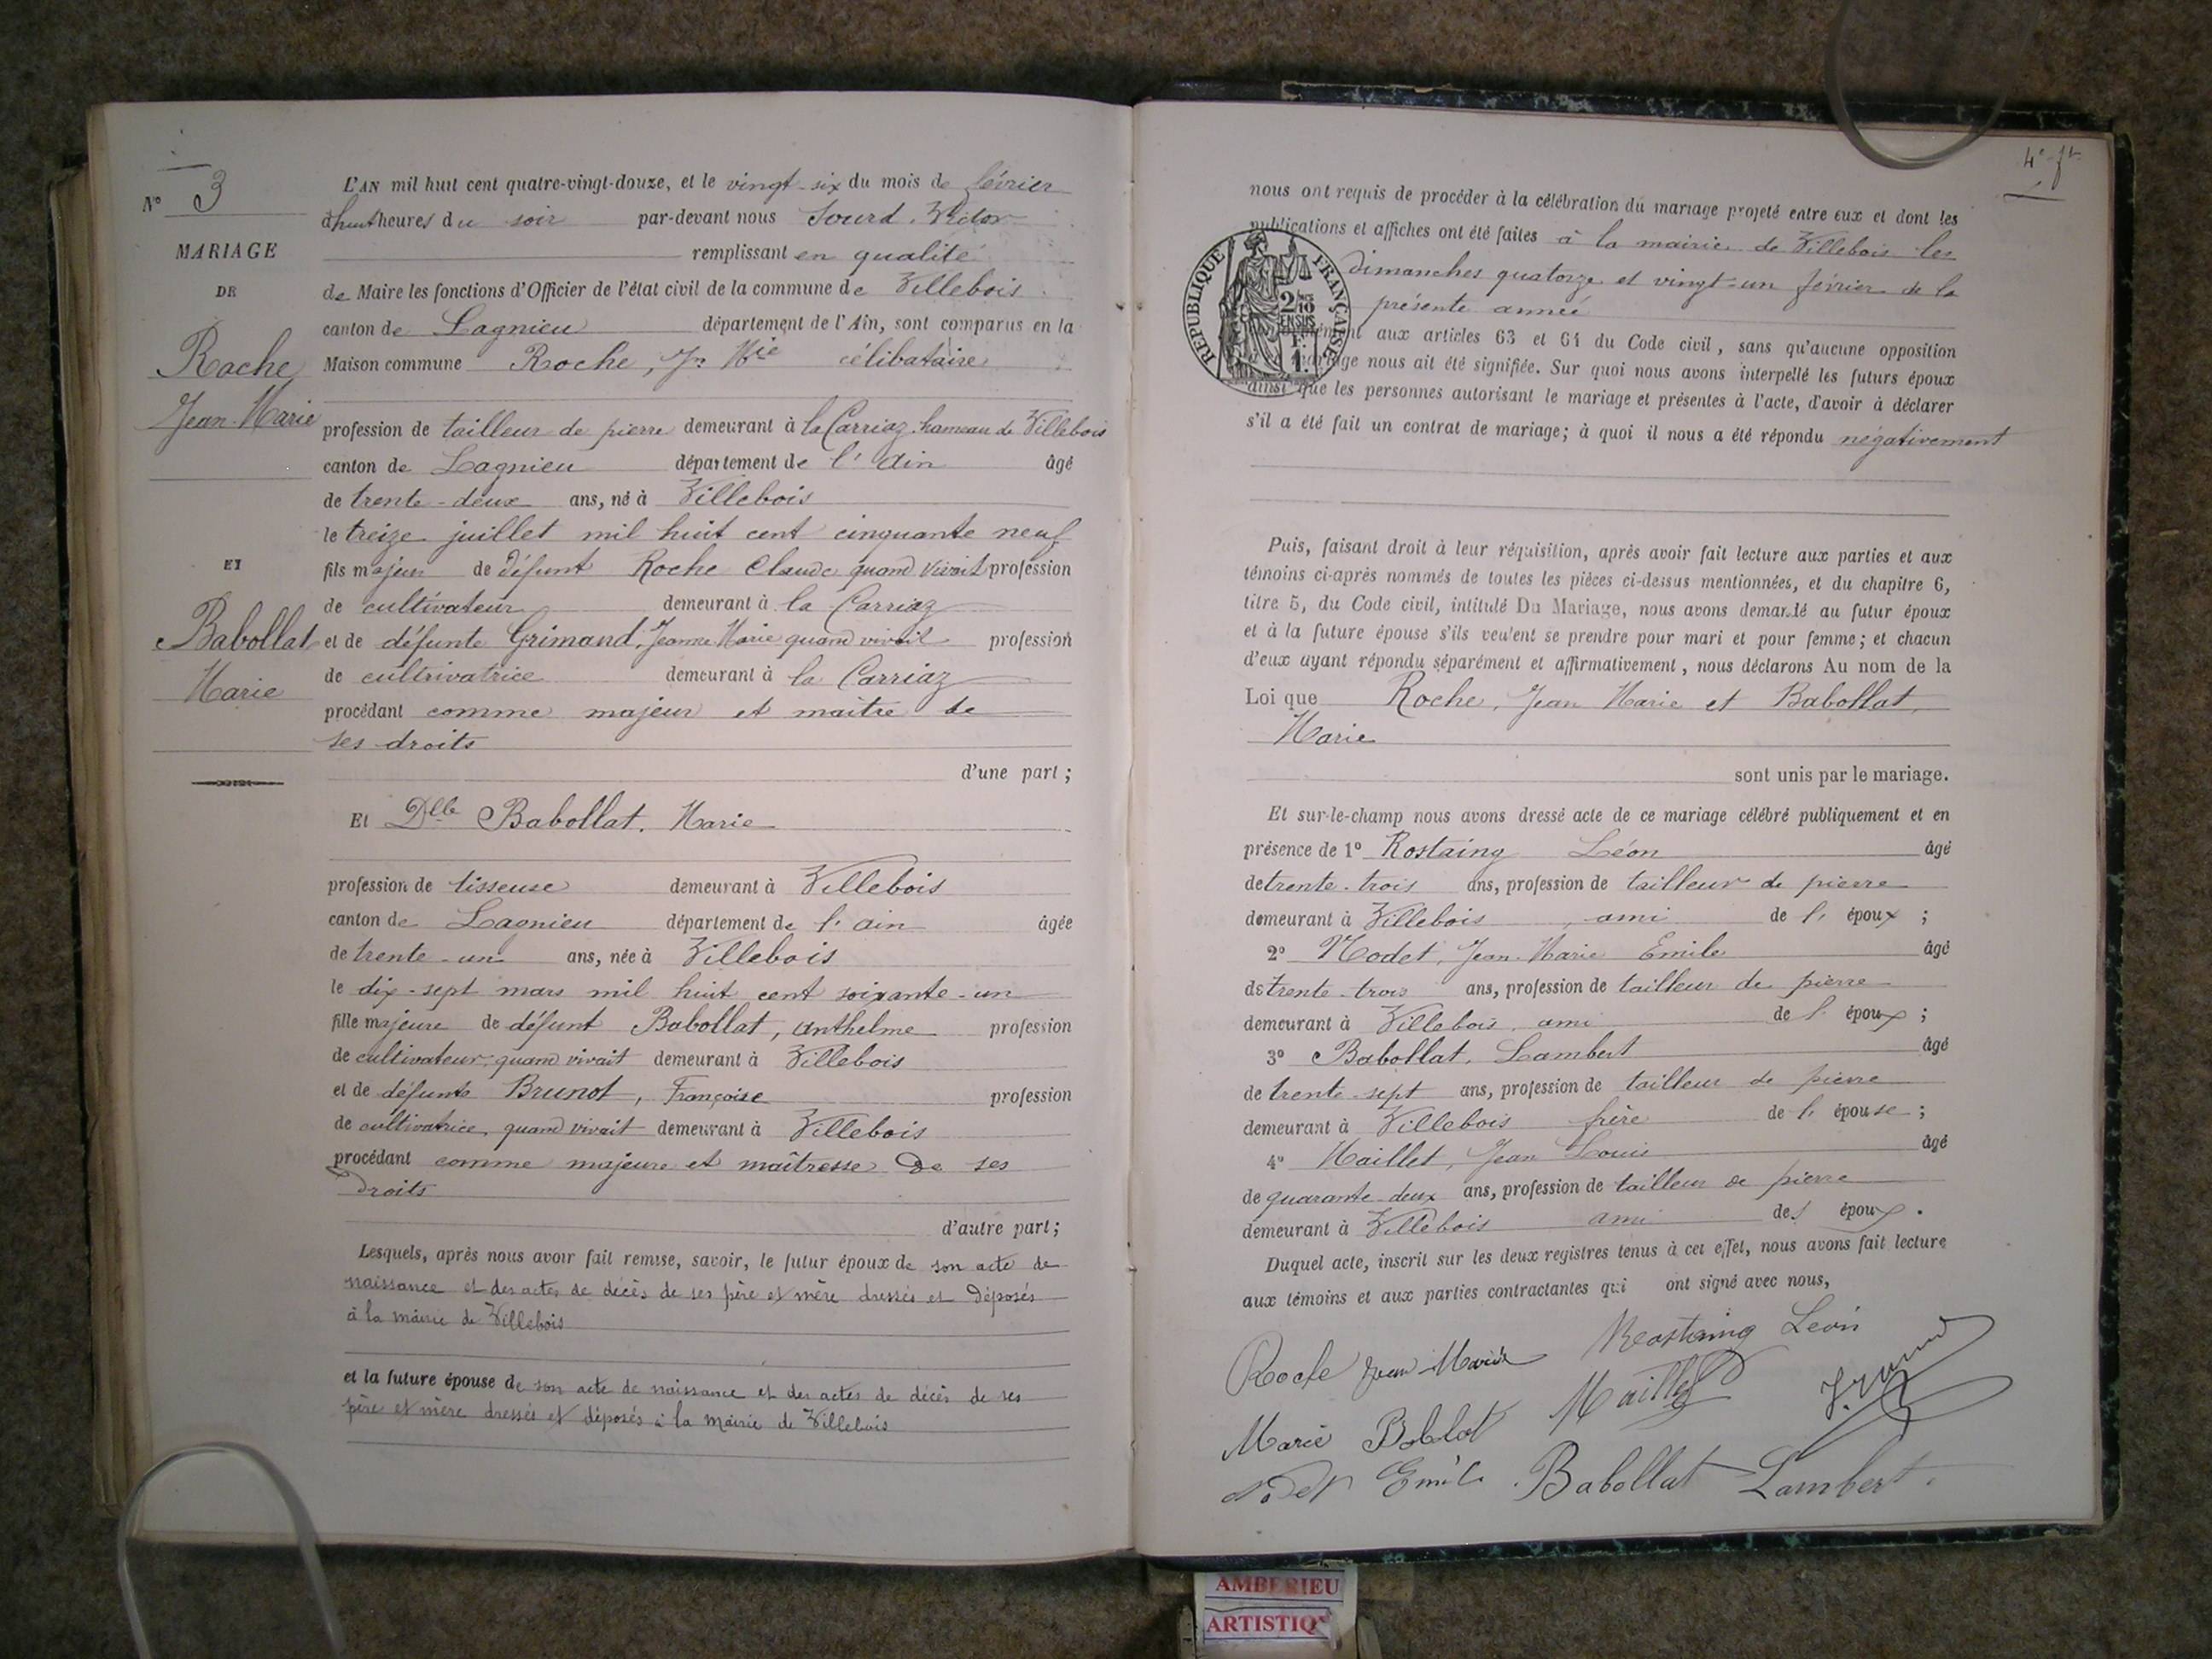 N° 3
MARIAGE
DE
Roche
Jean-Marie
ET
Babollat
Marie
L'AN mil huit cent quatre-vingt-douze, et le vingt-six du mois de février
à huit heures du soir par-devant nous Sourd, Victor
remplissant en qualité
de Maire les fonctions d'Officier de l'état civil de la commune de Villebois
canton de Lagnieu département de l'Ain, sont comparus en la
Maison commune Roche, Jn Mie célibataire
profession de tailleur de pierre demeurant à la Carriaz, hameau de Villebois
canton de Lagnieu département de l'Ain âgé
de trente-deux ans, né à Villebois
le treize juillet mil huit cent cinquante neuf
fils majeur de défunt Roche Claude quand vivait profession
de cultivateur demeurant à la Carriaz
et de défunte Grimand, Jeanne Marie quand vivait profession
de cultrivatrice demeurant à la Carriaz
procédant comme majeur et maître de
ses droits
d'une part ;
Et Dlle Babollat, Marie
profession de tisseuse demeurant à Villebois
canton de Lagnieu département de l'ain âgée
de trente-un ans, née à Villebois
le dix-sept mars mil huit cent soixante-un
fille majeure de défunt Babollat, Anthelme profession
de cultivateur quand vivait demeurant à Villebois
et de défunte Brunot, Françoise profession
de cultivatrice, quand vivait demeurant à Villebois
procédant comme majeure et maîtresse de ses
droits
d'autre part ;
Lesquels, après nous avoir fait remise, savoir, le futur époux de son acte de
naissance et des actes de décès de ses père et mère dressés et déposés
à la mairie de Villebois
et la future épouse de son acte de naissance et des actes de décès de ses
père et mère dressés et déposés à la mairie de Villebois
4e ft
nous ont requis de procéder à la célébration du mariage projeté entre eux et dont les
publications et affiches ont été faites à la mairie de Villebois les
dimanches quatorze et vingt-un février de la
présente année
RÉPUBLIQUE FRANÇAISE
2/10 EN SUS
F.
1.
aux articles 63 et 64 du Code civil, sans qu'aucune opposition
mariage nous ait été signifiée. Sur quoi nous avons interpellé les futurs époux
ainsi que les personnes autorisant le mariage et présentes à l'acte, d'avoir à déclarer
s'il a été fait un contrat de mariage ; à quoi il nous a été répondu négativement
Puis, faisant droit à leur réquisition, après avoir fait lecture aux parties et aux
témoins ci-après nommés de toutes les pièces ci-dessus mentionnées, et du chapitre 6,
titre 5, du Code civil, intitulé Du Mariage, nous avons demandé au futur époux
et à la future épouse s'ils veulent se prendre pour mari et pour femme ; et chacun
d'eux ayant répondu séparément et affirmativement, nous déclarons Au nom de la
Loi que Roche, Jean Marie et Babollat,
Marie
sont unis par le mariage.
Et sur-le-champ nous avons dressé acte de ce mariage célébré publiquement et en
présence de 1° Rostaing Léon âgé
de trente-trois ans, profession de tailleur de pierre
demeurant à Villebois, ami de l'époux ;
2° Nodet, Jean-Marie Emile âgé
de trente-trois ans, profession de tailleur de pierre
demeurant à Villebois, ami de l'époux ;
3° Babollat, Lambert âgé
de trente-sept ans, profession de tailleur de pierre
demeurant à Villebois frère de l'épouse ;
4° Maillet, Jean Louis âgé
de quarante-deux ans, profession de tailleur de pierre
demeurant à Villebois ami des époux.
Duquel acte, inscrit sur les deux registres tenus à cet effet, nous avons fait lecture
aux témoins et aux parties contractantes qui ont signé avec nous,
Roche Jean Marie Rostaing Léon
Marie Boblat Maillet
Emile Babollat Lambert
AMBERIEU
ARTISTIQ